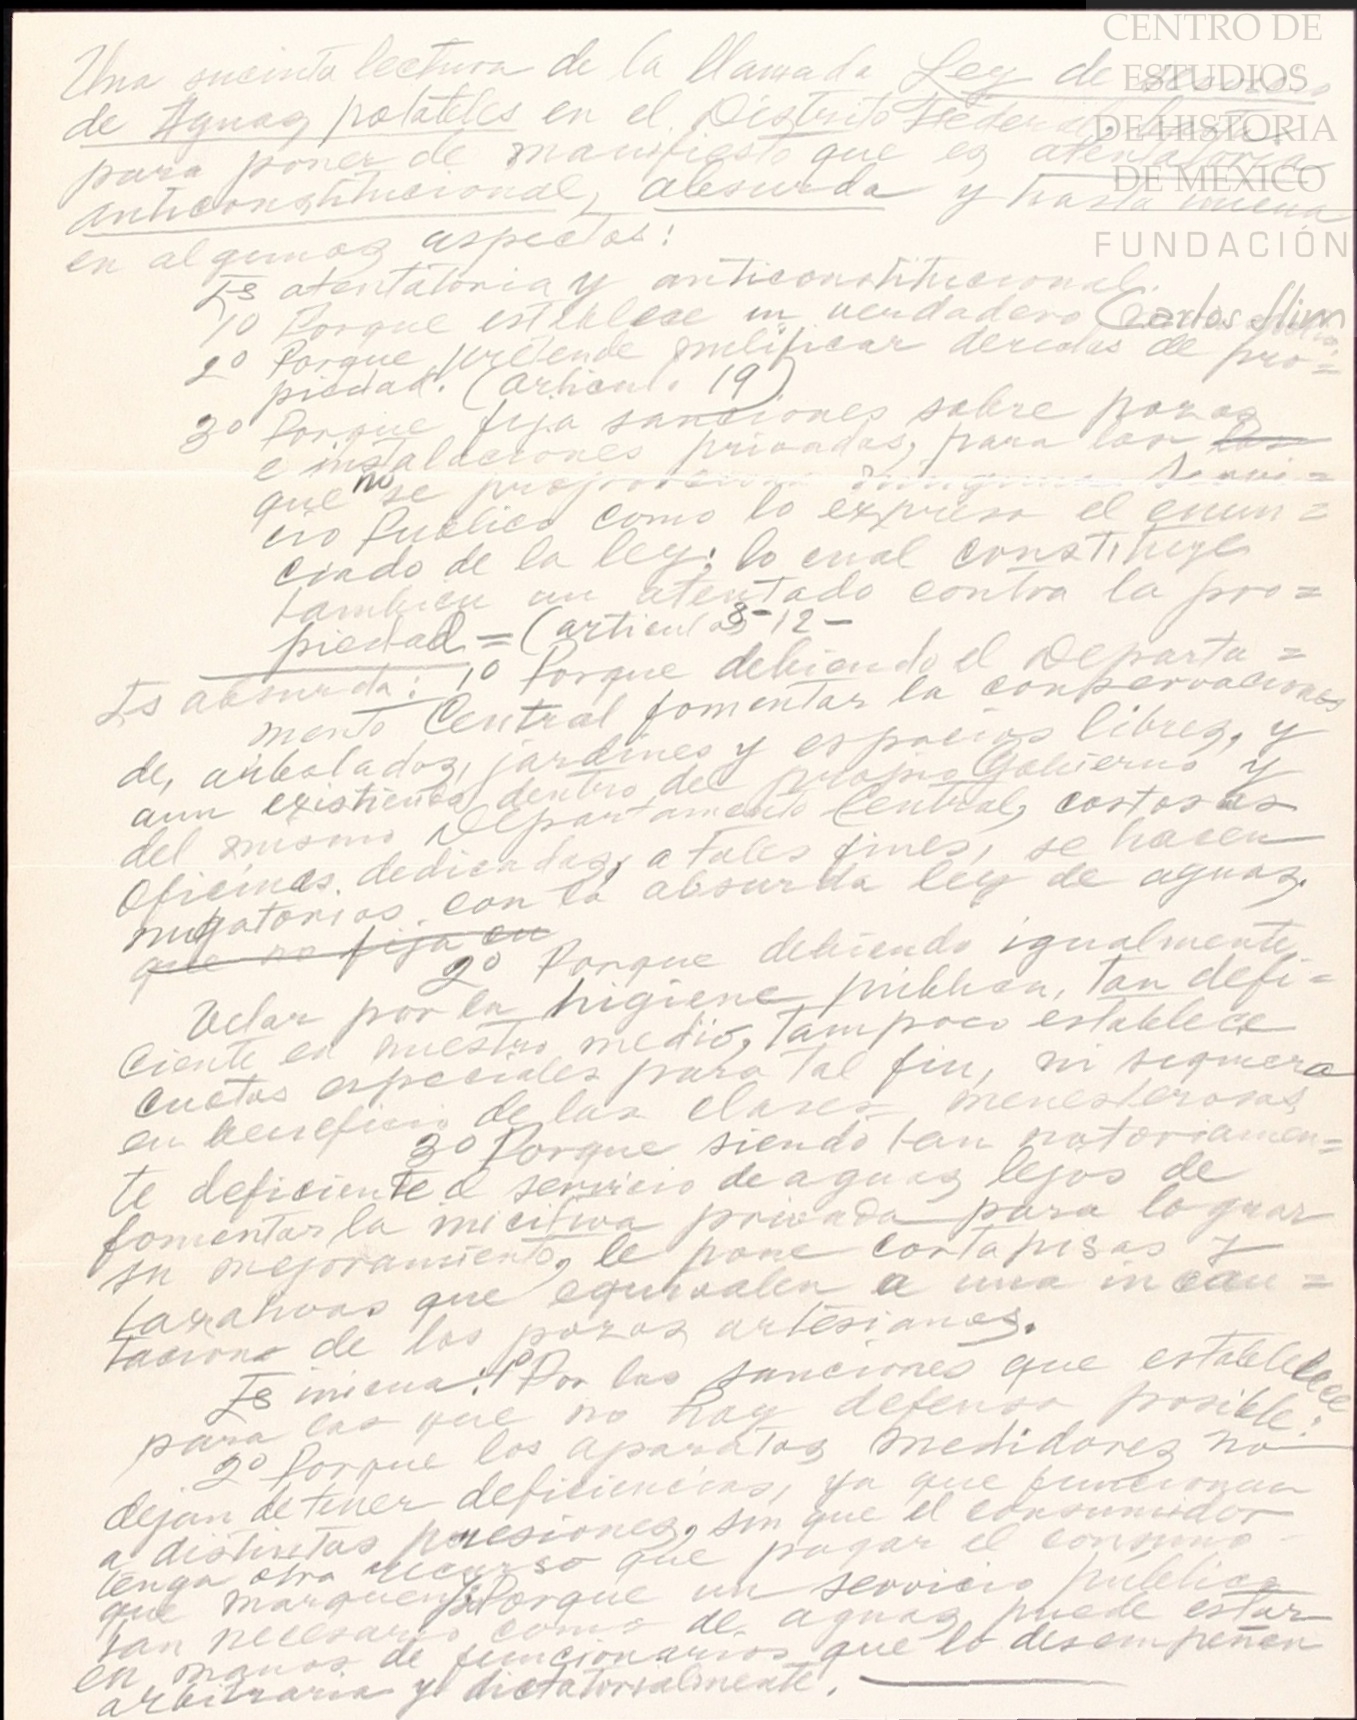 CENTRO DE
ESTUDIOS
DE HISTORIA
DE MÉXICO
FUNDACIÓN
Carlos Slim
Una sucinta lectura de la llamada Ley de
de Aguas potables en el Distrito Federal, basta
para poner de manifiesto que es atentatoria
anticonstitucional, absurda y hasta inicua
en algunos aspectos:
Es atentatoria y anticonstitucional.
1o Porque establese un verdadero
2o Porque pretende nulificar derechos de pro=
piedad. (articulo 19)
3o Porque fija sanciones sobre pozos
e instalaciones privadas, para las los
que no se proporciona ningun servi=
cio Publico como lo expresa el enun=
ciado de la ley; lo cual constituye
tambien un atentado contra la pro=
piedad = (articulos 8-12-
Es absurda: 1o Porque debiendo el Departa=
mento Central fomentar la conservaciones
de, arbolados, jardines y espacios libres, y
aun existiendo dentro del propio Gobierno y
del mismo Departamento Central, costosas
Oficinas dedicadas, a tales fines, se hacen
nugatorios con la absurda ley de aguas.
que no fija en
2o Porque debiendo igualmente
Velar por la higiene publica, tan defi=
ciente en nuestro medio, tampoco establece
cuotas especiales para tal fin, ni siquiera
en beneficio de las clases menesterosas
3o Porque siendo tan notoriamen=
te deficiente el servicio de aguas lejos de
fomentar la inicitiva privada para lograr
su mejoramiento, le pone cortapisas y
taxativas que equivalen a una incau=
taciono de los pozos artesianos.
Es inicua: 1o Por las sanciones que establece
para las que no hay defensa posible:
2o Porque los aparatos medidores no
dejan de tener deficiencias, ya que funcionan
a distintas presiones, sin que el consumidor
tenga otro recurso que pagar el consumo
que marquen. 3o Porque un servicio publico
tan necesario como de aguas, puede estar
en manos de funcionarios que lo desempeñen
arbitraria y dictatorialmente.